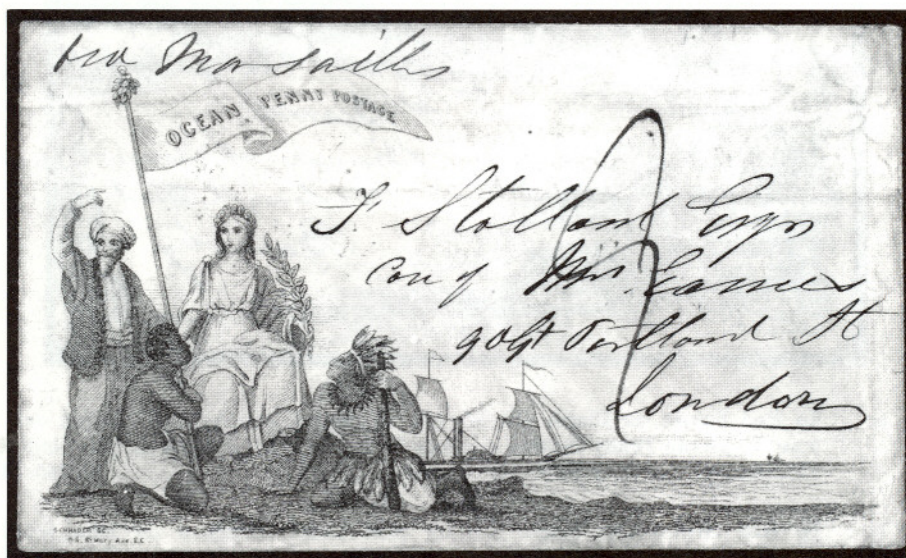 via Marsailles
OCEAN PENNY POSTAGE
Stollard Esqr
Care of Mrs. Eames
90 Gt Portland St
London